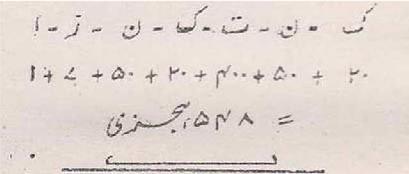 ک - ن - ت - ک - ن - ز - ا
۲۰ + ۵۰ + ۴۰۰ + ۲۰ + ۵۰ + ۷ + ۱
= ۵۴۸